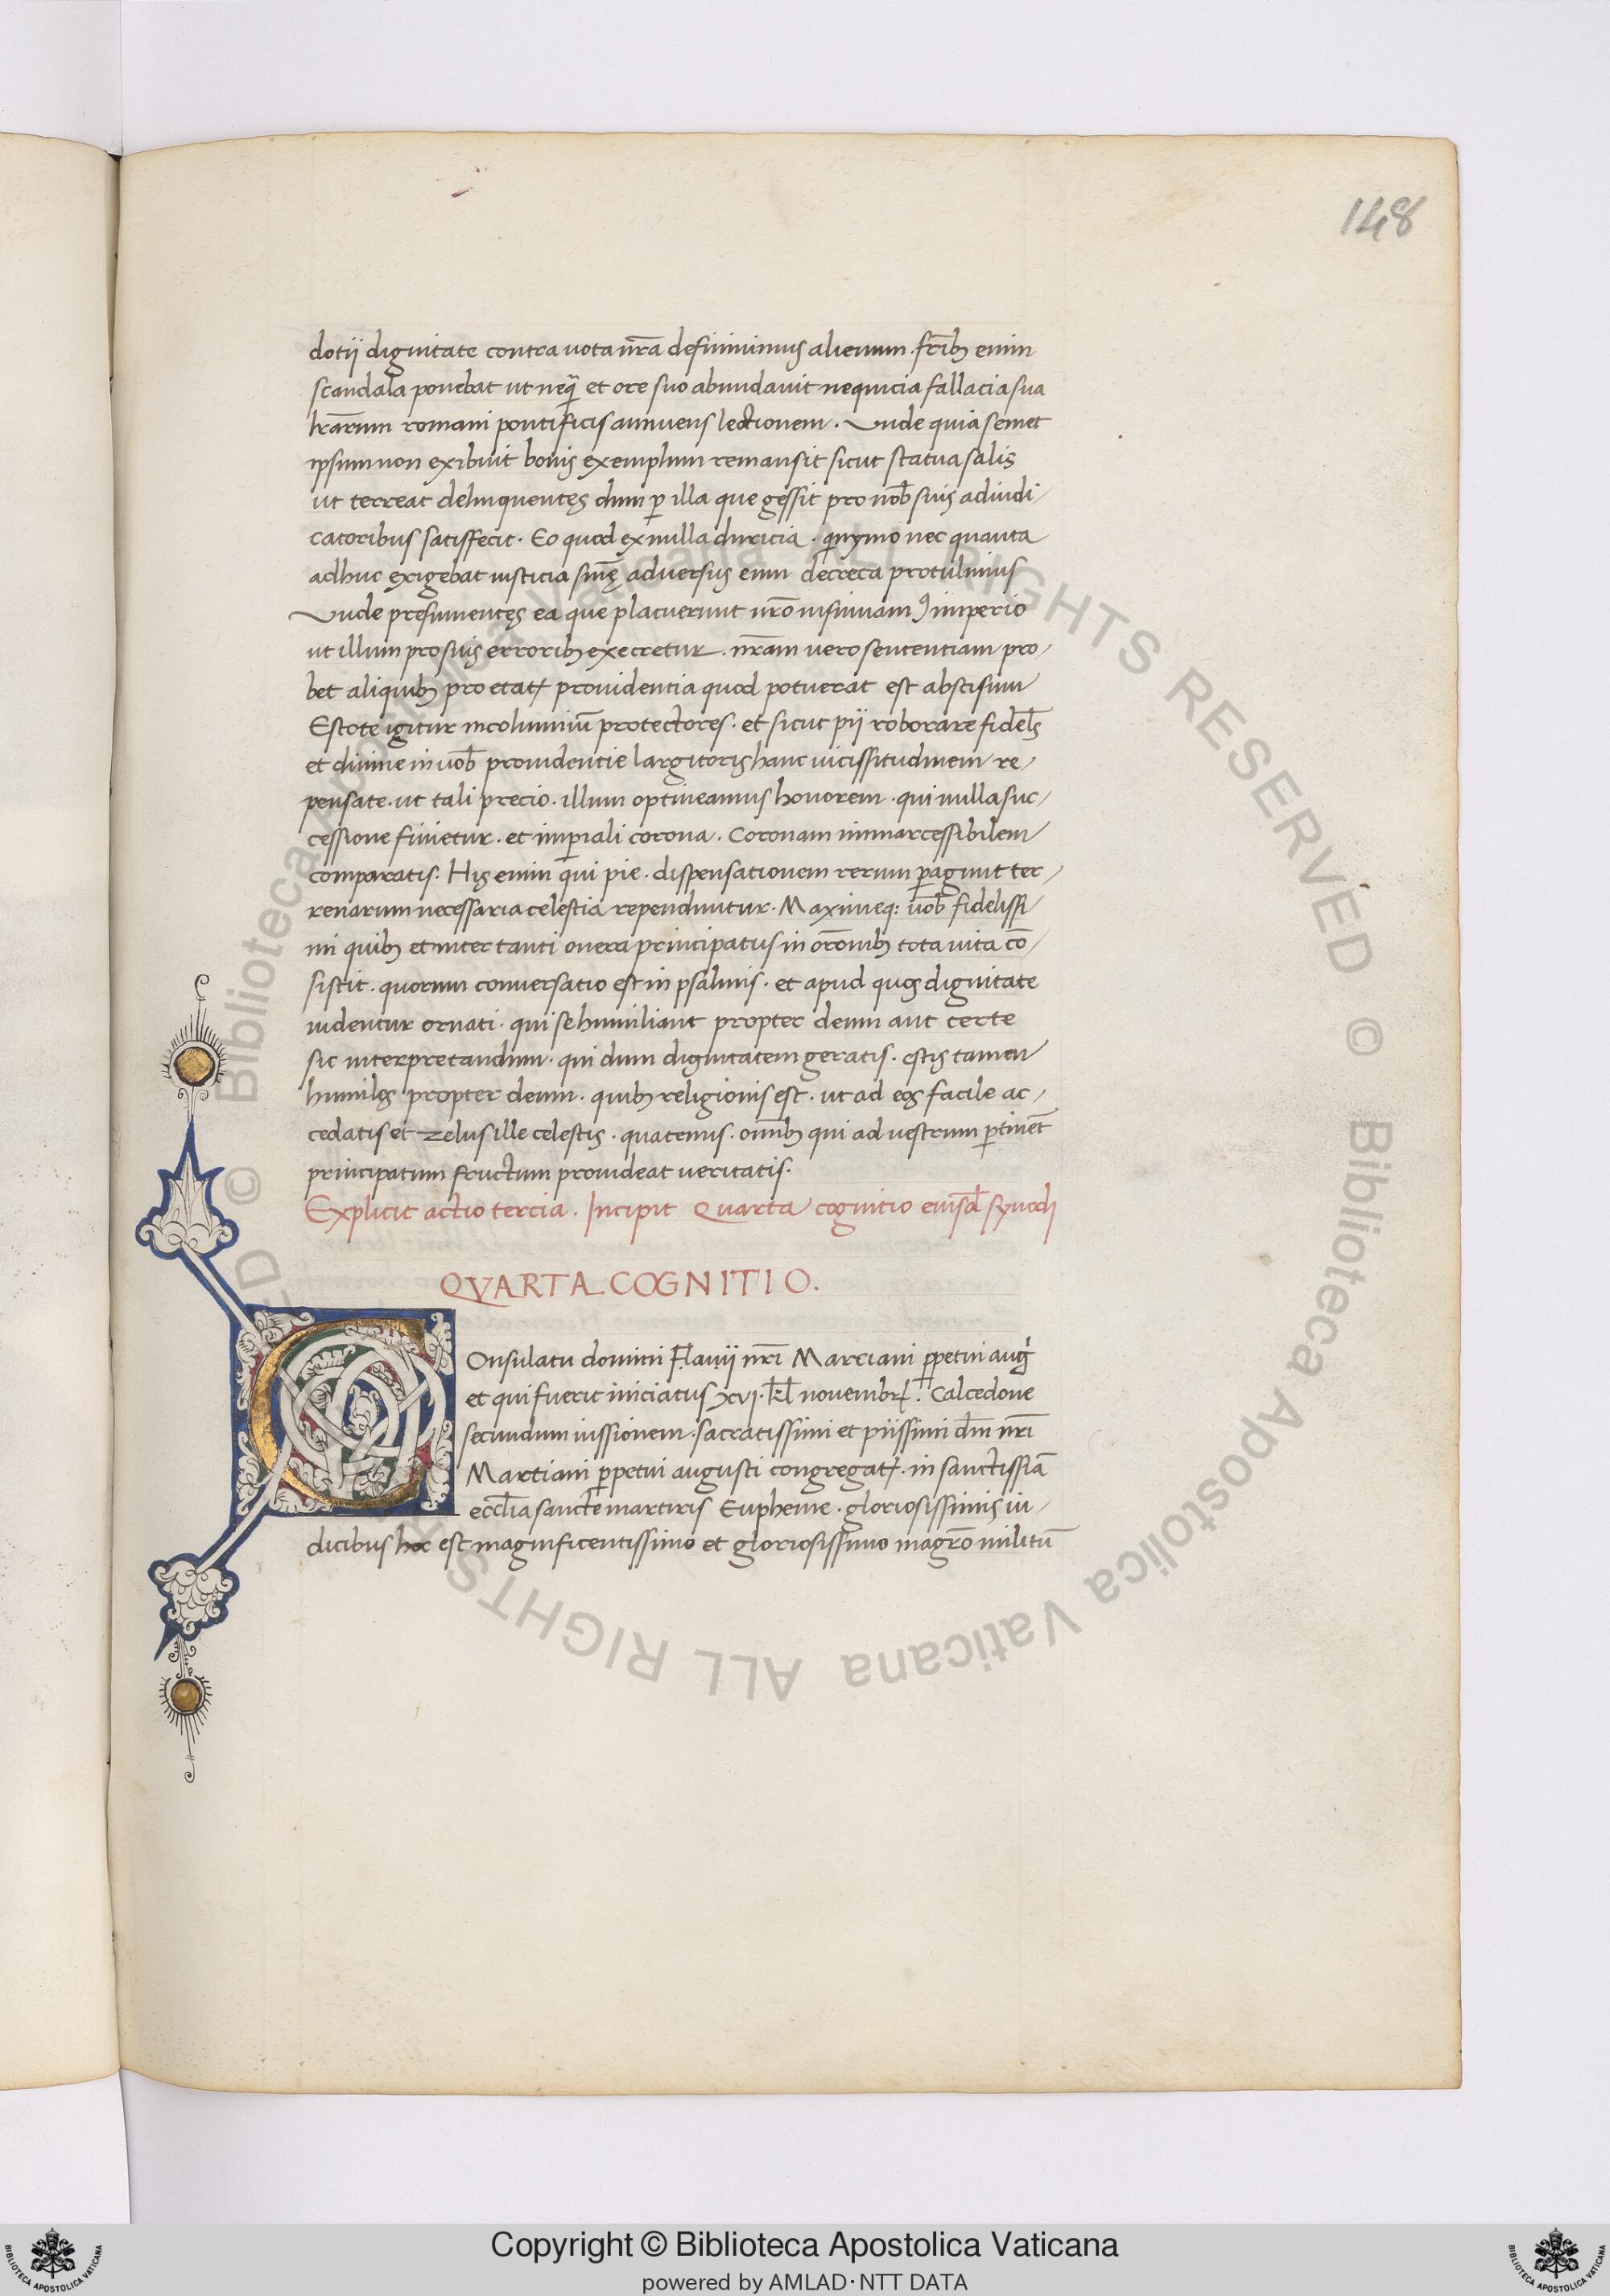 148
dotij dignitate contra uota nr̄a definiuimus alienum. fr̄ibꝫ enim
scandala ponebat ut neq̄ et ore suo abundauit nequicia fallacia sua
lr̄arum romani pontificis annuens lectionem. Unde quia semet
ipsum non exibuit bonis exemplum remansit sicut statua salis
ut terreat delinquentęs dum ꝑ illa que gessit pro nob̄ suis adiudi-
catoribus satisfecit. Eo quod ex nulla duricia. quinymo nec quanta
adhuc exigebat iusticia sinę aduersus eum decreta protulimus
Unde presumentęs ea que placuerunt nr̄o insinuamꝰ imperio
ut illum pro suis erroribꝫ execretur. nr̄am uero sententiam pro-
bet aliquibꝫ pro etatꝭ prouidentia quod potuerat est abscisum
Estote igitur incolumiū protectores. et sicut pij roborare fidel̄s
et diuine in uob̄ prouidentie largitoris hanc uicissitudinem re-
pensate. ut tali precio. illum optineamus honorem. qui nulla suc-
cessione finietur. et imꝑiali corona. Coronam inmarcessibilem
comparatis. His enim qui pie. dispensationem rerum ꝑagunt ter-
renarum necessaria celestia rependuntur. Maximeq: uob̄ fidelissi-
mi quibꝫ et inter tanti onera principatus in or̄onibꝫ tota uita cō-
sistit. quorum conuersatio est in psalmis. et apud quos dignitate
uidentur ornati. qui se humiliant propter deum aut certe
sic interpretandum. qui dum dignitatem geratis. estis tamen
humiles propter deum. quibꝫ religionis est. ut ad eos facile ac-
cedatis et zelus ille celestis. quatenus. omībꝫ qui ad uestrum ꝑtinēt
principatum fructum prouideat ueritatis.
Explicit actio tercia. Incipit Quarta cognitio eiusd̄ synodi
QVARTA COGNITIO.
COnsulatu domini Flauij nr̄i Marciani ꝑpetui auḡ
et qui fuerit iniciatus xvi. kl̄ novembrꝭ. Calcedone
secundum iussionem. sacratissimi et piissimi dm̄ nr̄i
Martiani ꝑpetui augusti congregatꝭ. in sanctissīa
eccl̄ia sancte martiris Eupheme. gloriosissimis iu-
dicibus hoc est magnificentissimo et gloriosissimo magr̄o militū
Copyright © Biblioteca Apostolica Vaticana
powered by AMLAD·NTT DATA